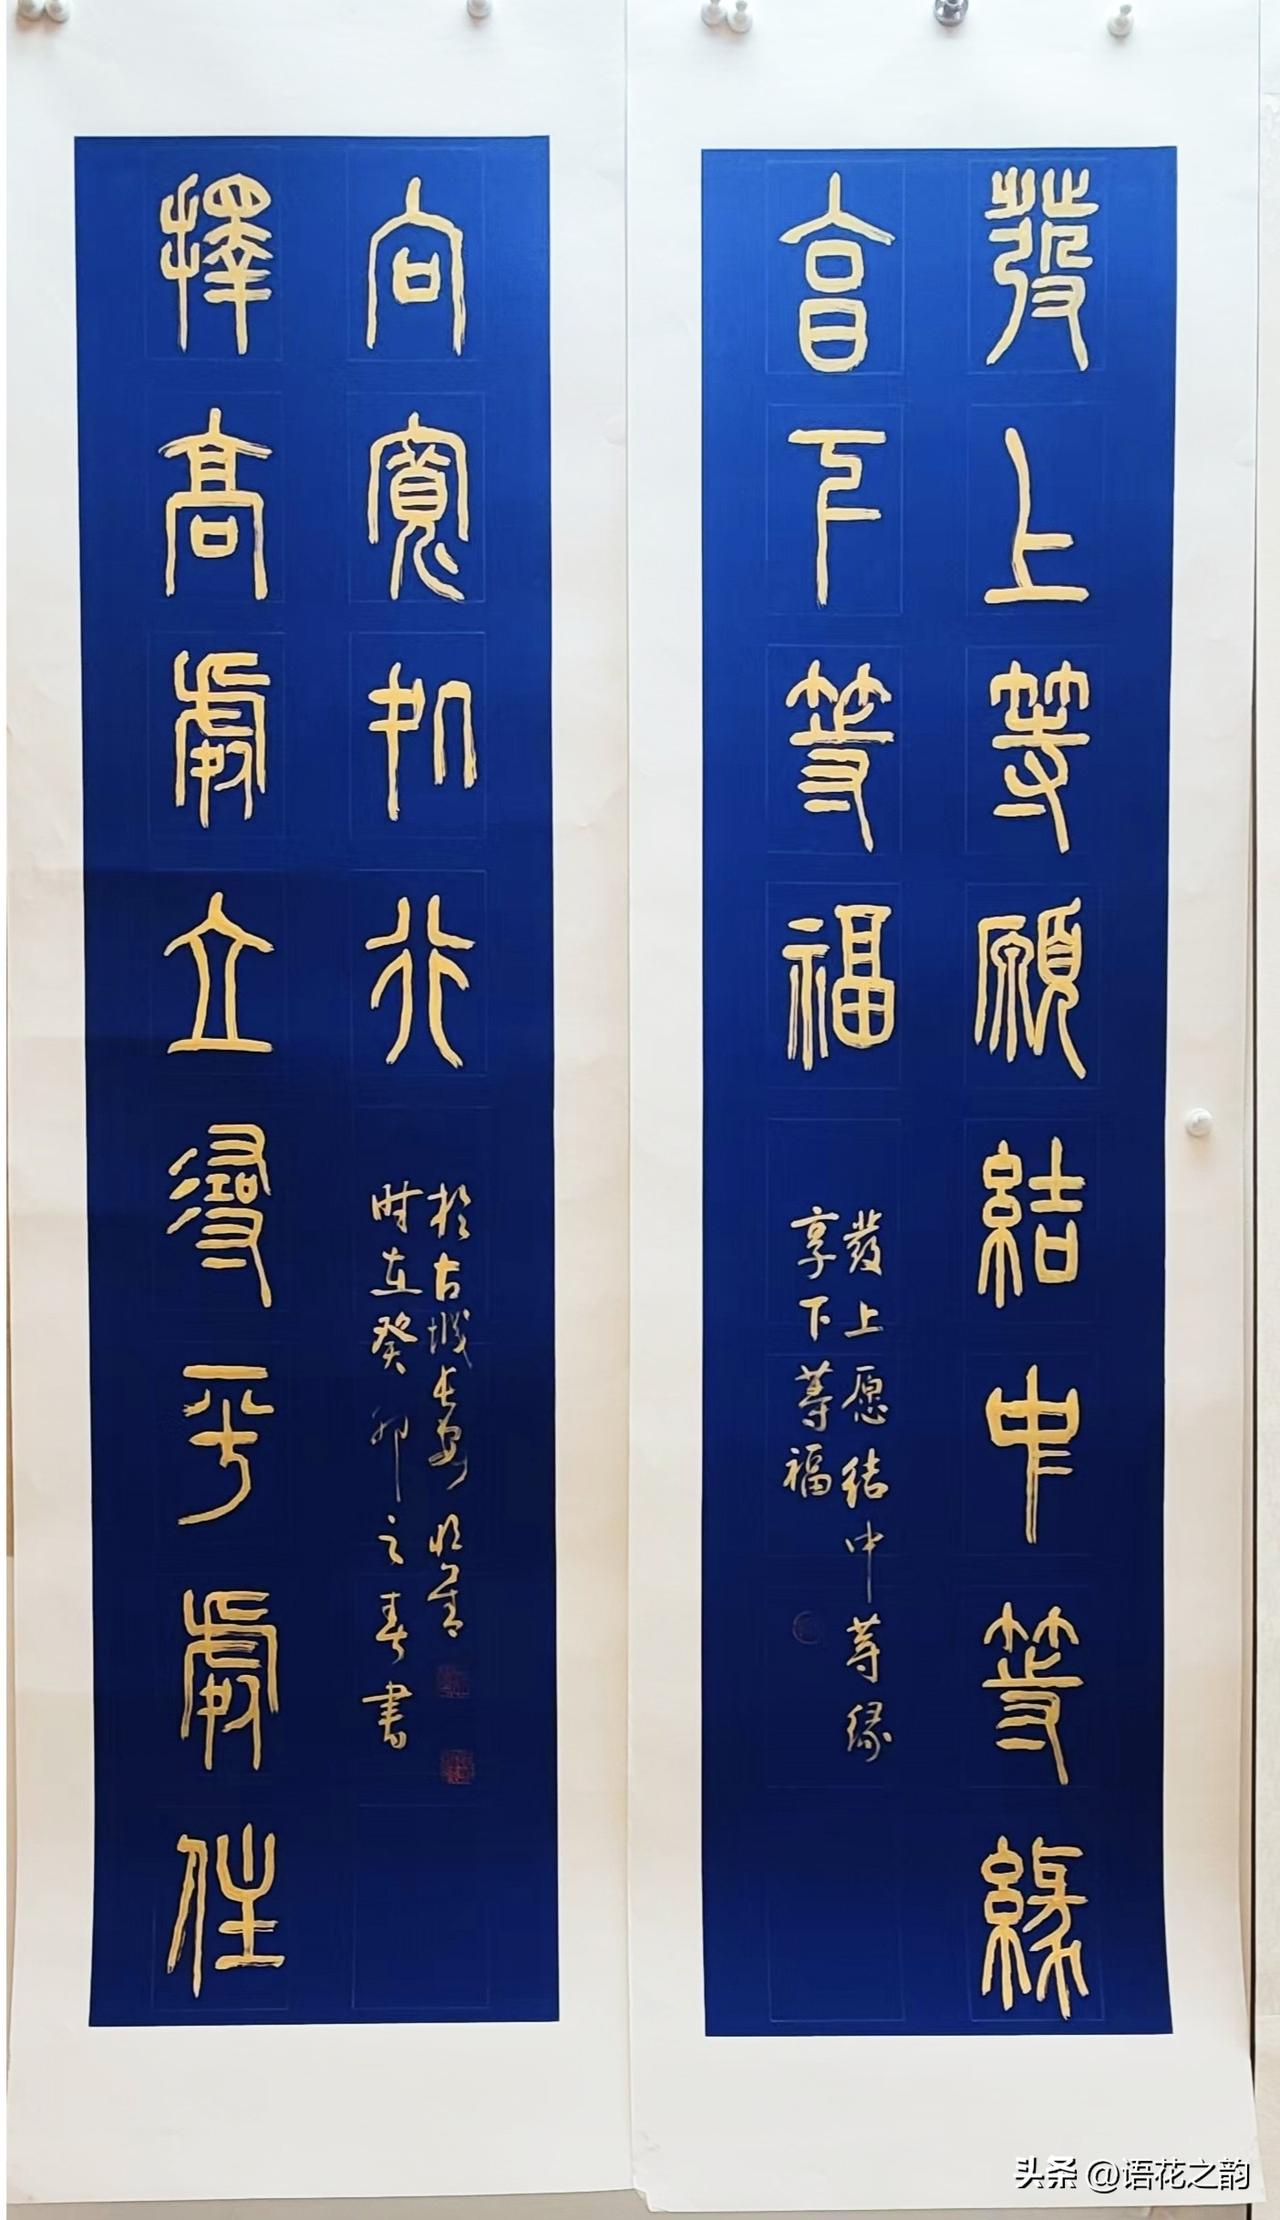 發上等願結中等緣
享下等福
發上愿结中等緣
享下等福
擇高處立尋平處住
向寬処行
时在癸卯之春書
於古城長安
头条 @语花之韵